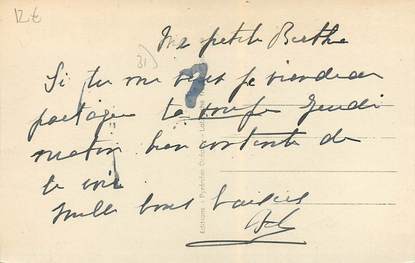 12€
31)
Ma petite Berthe
Si tu me veux je viendrai
partager ta soupe Jeudi
matin bien contente de
te voir.
Mille bons baisers
Editions - Pyrénées